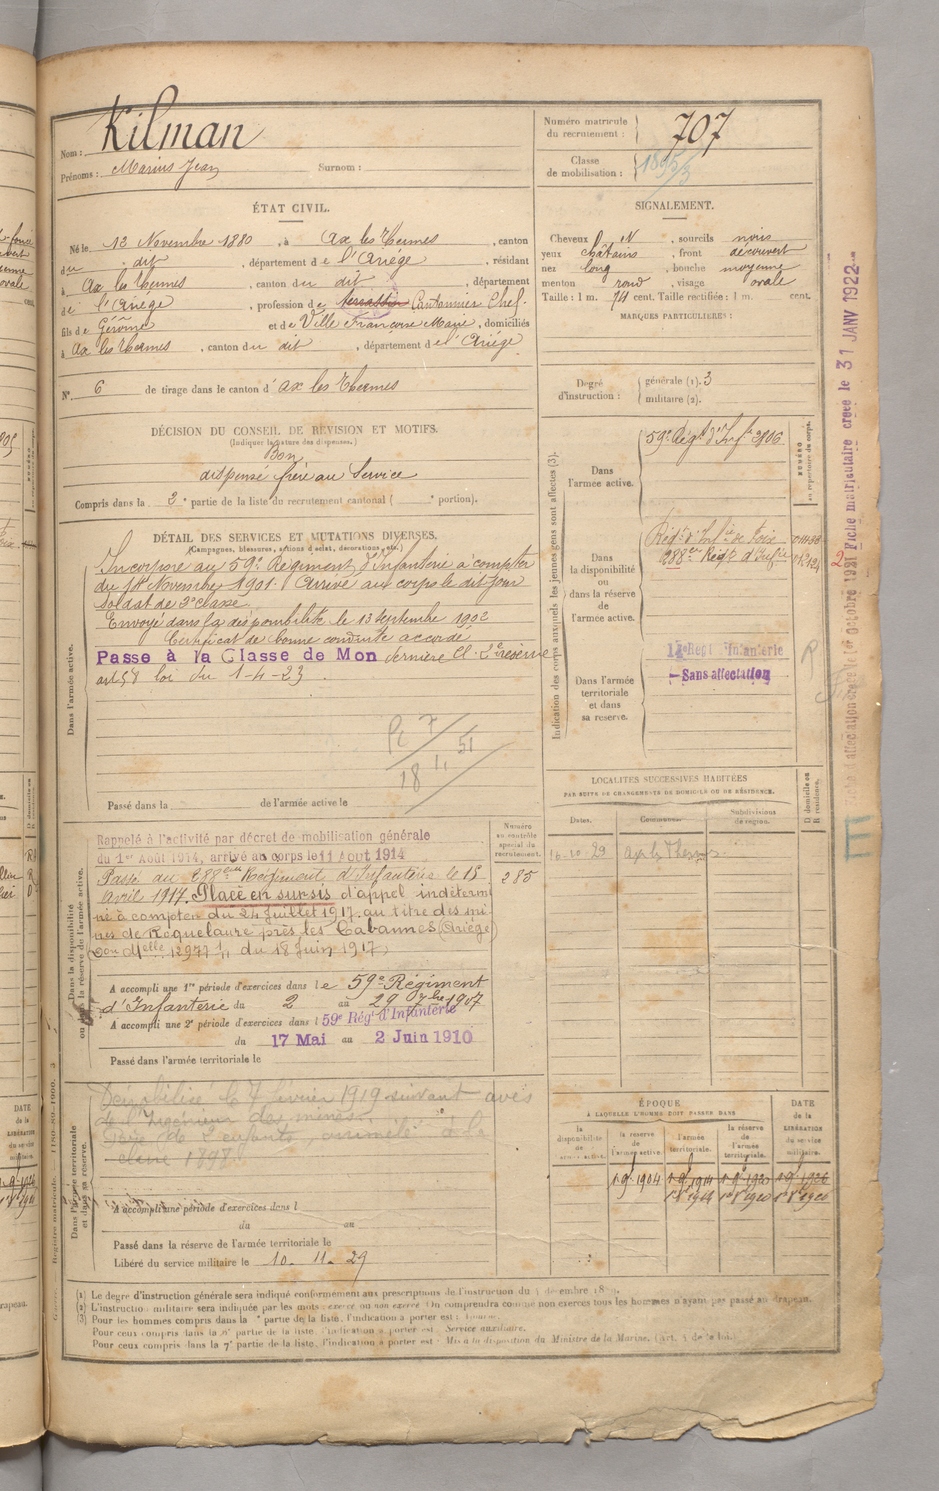 Nom : Kilman
Prénoms : Marius Jean Surnom :
Numéro matricule du recrutement : 707
Classe de mobilisation :
ÉTAT CIVIL.
Né le 13 Novembre 1880, à Ax les Thermes, canton
du dit, département de l'Ariége, résidant
à Ax les Thermes, canton du dit, département
de l'Ariege, profession de terrassier Cantonnier Chef.
fils de Gérôme et de Ville Françoise Marie, domiciliés
à Ax les Thermes, canton du dit, département de l'Ariége
N° 6 de tirage dans le canton d'Ax les Thermes
SIGNALEMENT.
Cheveux N, sourcils noirs
yeux châtains, front découvert
nez long, bouche moyenne
menton rond, visage ovale
Taille : 1 m. 74 cent. Taille rectifiée : 1 m. cent.
MARQUES PARTICULIÈRES :
Degré d'instruction : générale (1). 3
militaire (2).
DÉCISION DU CONSEIL DE RÉVISION ET MOTIFS.
(Indiquer la nature des dispenses.)
Bon
dispensé frère au Service
Compris dans la 2e partie de la liste du recrutement cantonal ( portion).
DÉTAIL DES SERVICES ET MUTATIONS DIVERSES.
(Campagnes, blessures, actions d'éclat, décorations, etc.)
Dans l'armée active.
Incorporé au 59e Régiment d'Infanterie à compter
du 14 Novembre 1901. Arrivé au corps le dit jour
soldat de 2e classe
Envoyé dans la disponibilité le 13 septembre 1902
Certificat de bonne conduite accordé
Passé à la Classe de Mon dernière Cl. 2e réserve
art 58 loi du 1-4-23.
Passé dans la de l'armée active le
Indication des corps auxquels les jeunes gens sont affectés (3).
NUMÉRO au répertoire du corps.
Dans l'armée active.
59e Régt d'Infie 2906
Dans la disponibilité ou dans la réserve de l'armée active.
Régt d'Infie de Foix
288e Régt d'Infie
Dans l'armée territoriale et dans sa réserve.
Régt Infanterie
Sans affectation
Fiche matriculaire créée le 31 JANV 1922
Fiche d'affectation créée le 1er octobre
Dans la disponibilité ou dans la réserve de l'armée active.
Numéro au contrôle spécial du recrutement.
285
Rappelé à l'activité par décret de mobilisation générale
du 1er Août 1914, arrivé au corps le 11 Aout 1914
Passé au 288eme Régiment d'Infanterie le 15
avril 1917. Placé en sursis d'appel indéterm
né à compter du 24 Juillet 1917. au titre des mi
nes de Roquelaure près les Cabannes (Ariège)
du 18 Juin 1917
A accompli une 1re période d'exercices dans le 59e Régiment
d'Infanterie du 2 au 29 7bre 1907
A accompli une 2e période d'exercices dans l 59e Régt d'Infanterie
du 17 Mai au 2 Juin 1910
Passé dans l'armée territoriale le
LOCALITÉS SUCCESSIVES HABITÉES
PAR SUITE DE CHANGEMENTS DE DOMICILE OU DE RÉSIDENCE.
Dates. Communes. Subdivisions de région. D domicile ou R résidence.
16-10-29 Ax les Thermes
Dans l'armée territoriale et dans sa réserve.
Démobilisé le 7 février 1919 suivant avis
de l'Ingénieur des mines.
Père de 2 enfants, assimilé à la
classe 1898
A accompli une période d'exercices dans l
du au
Passé dans la réserve de l'armée territoriale le
Libéré du service militaire le 10-11-29
ÉPOQUE
À LAQUELLE L'HOMME DOIT PASSER DANS
la disponibilité de l'armée active. la réserve de l'armée active. l'armée territoriale. la réserve de l'armée territoriale. DATE de la LIBÉRATION du service militaire.
1-9-1904 1-9-1914 1-9-1920 1-9-1926
(1) Le degré d'instruction générale sera indiqué conformément aux prescriptions de l'instruction du
(2) L'instruction militaire sera indiquée par les mots : exercé ou non exercé. On comprendra comme non exercés tous les hommes n'ayant pas passé au drapeau.
(3) Pour les hommes compris dans la partie de la liste, l'indication à porter est :
Pour ceux compris dans la 6e partie de la liste, l'indication à porter est : Service auxiliaire.
Pour ceux compris dans la 7e partie de la liste, l'indication à porter est : Mis à la disposition du Ministre de la Marine. (art. 4 de la loi.)